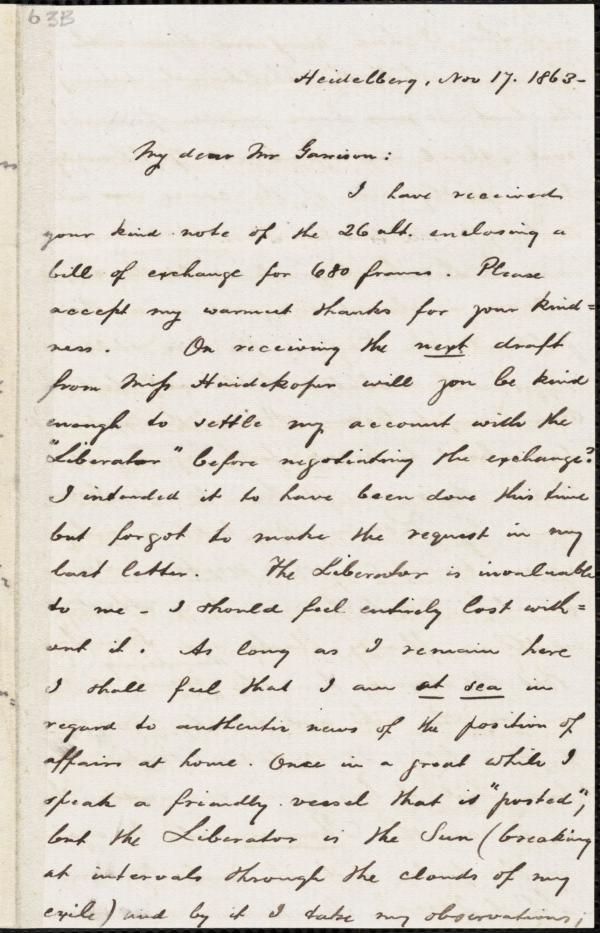 63B
Heidelberg, Nov 17. 1863-
My dear Mr Garrison:
I have received
your kind note of the 26 ult. enclosing a
bill of exchange for 680 francs. Please
accept my warmest thanks for your kind=
ness. On receiving the next draft
from Miss Huidekoper will you be kind
enough to settle my account with the
"Liberator" before negotiating the exchange?
I intended it to have been done this time
but forgot to make the request in my
last letter. The Liberator is invaluable
to me - I should feel entirely lost with=
out it. As long as I remain here
I shall feel that I am at sea in
regard to authentic news of the position of
affairs at home. Once in a great while I
speak a friendly vessel that is "posted",
but the Liberator is the Sun (breaking
at intervals through the clouds of my
exile) and by it I take my observations;